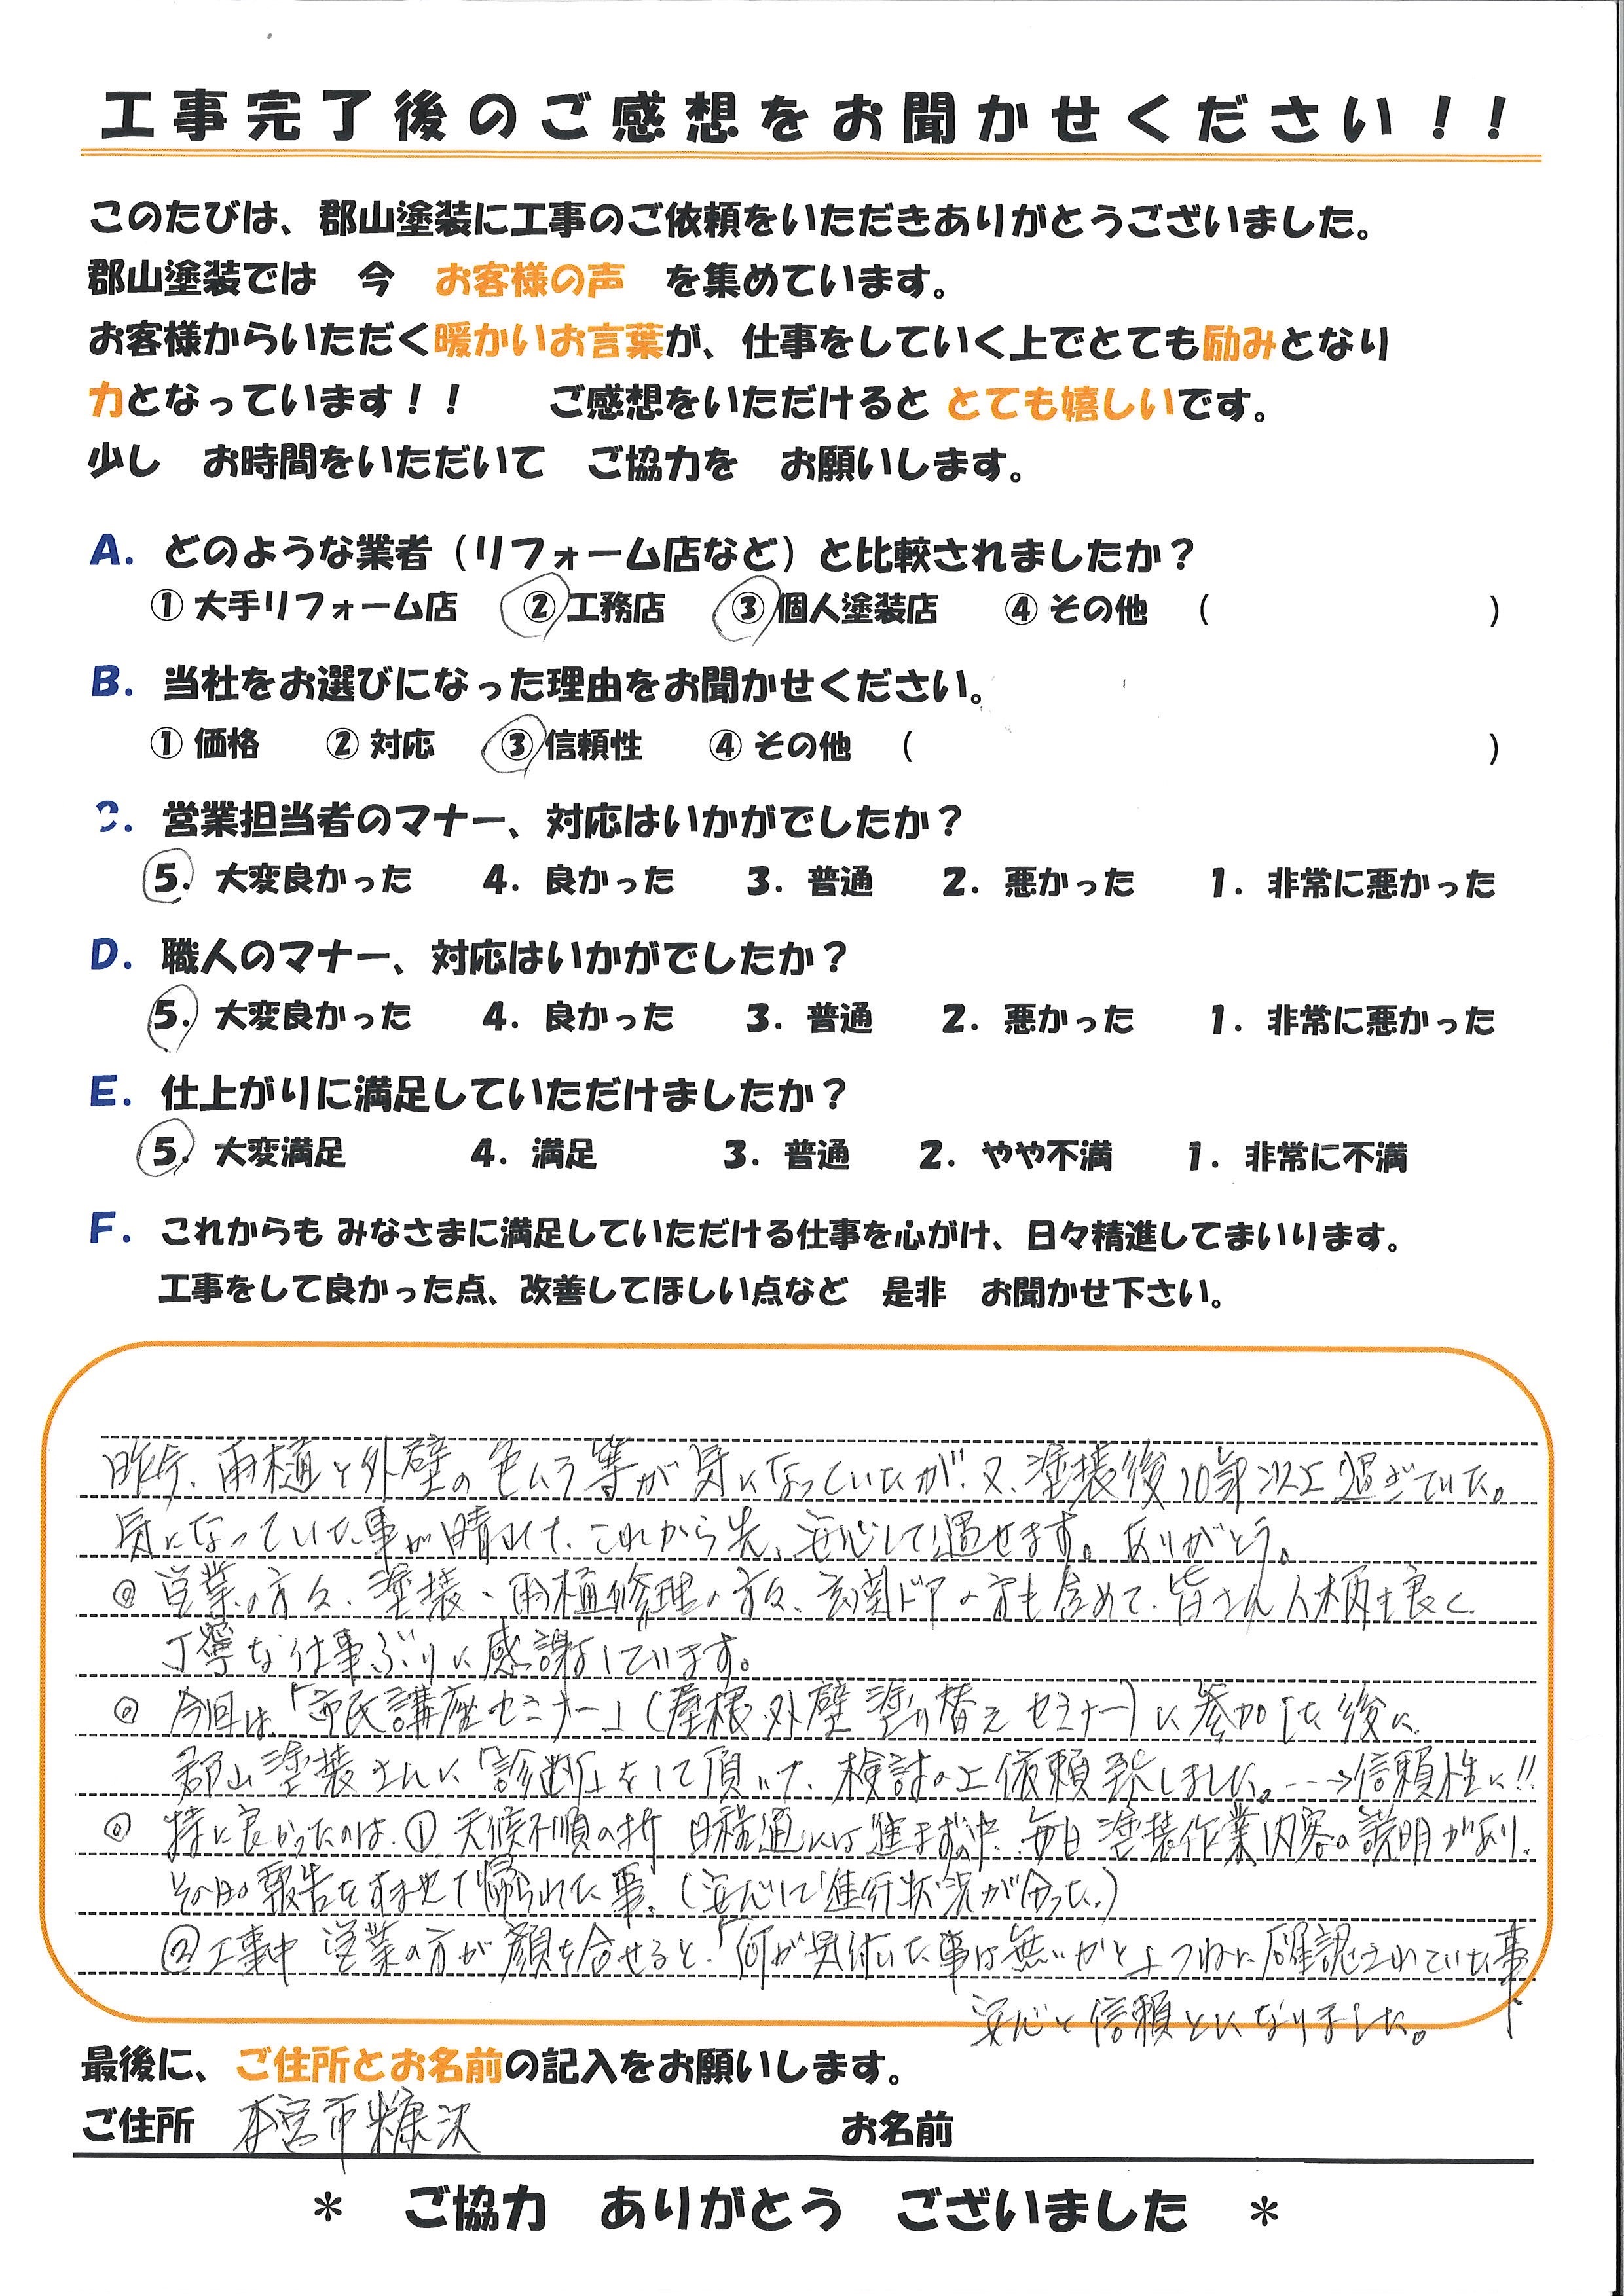 工事完了後のご感想をお聞かせください！！
このたびは、郡山塗装に工事のご依頼をいただきありがとうございました。
郡山塗装では　今　お客様の声　を集めています。
お客様からいただく暖かいお言葉が、仕事をしていく上でとても励みとなり
力となっています！！　　ご感想をいただけると とても嬉しいです。
少し　お時間をいただいて　ご協力を　お願いします。
A．どのような業者（リフォーム店など）と比較されましたか？
① 大手リフォーム店　② 工務店　③ 個人塗装店　④ その他　（　　　　　　　　）
B．当社をお選びになった理由をお聞かせください。
① 価格　② 対応　③ 信頼性　④ その他　（　　　　　　　　）
C．営業担当者のマナー、対応はいかがでしたか？
5．大変良かった　4．良かった　3．普通　2．悪かった　1．非常に悪かった
D．職人のマナー、対応はいかがでしたか？
5．大変良かった　4．良かった　3．普通　2．悪かった　1．非常に悪かった
E．仕上がりに満足していただけましたか？
5．大変満足　4．満足　3．普通　2．やや不満　1．非常に不満
F．これからも みなさまに満足していただける仕事を心がけ、日々精進してまいります。
工事をして良かった点、改善してほしい点など　是非　お聞かせ下さい。
昨今、雨樋と外壁の色ムラ等が気になっていたが、又、塗装後10年以上過ぎていた。
気になっていた事が晴れて、これから先、安心して過せます。ありがとう。
◎ 営業の方々、塗装・雨樋修理の方々、玄関ドアの方も含めて、皆さん人柄も良く
丁寧な仕事ぶりに感謝しています。
◎ 今回は「市民講座セミナー」（屋根・外壁塗り替えセミナー）に参加した後に
郡山塗装さんに「診断」をして頂いて、検討の上依頼致しました。---→信頼性に!!
◎ 特に良かったのは、① 天候不順の折　日程通りには進まず　中、毎日塗装作業内容の説明があり、
その日の報告をすませて帰られた事。（安心して進行状況が分った。）
② 工事中　営業の方が顔を合せると、「何か気付いた事は無いかと」つねに確認されていた事、
安心と信頼とになりました。
最後に、ご住所とお名前の記入をお願いします。
ご住所　本宮市糠沢　お名前
＊　ご協力　ありがとう　ございました　＊